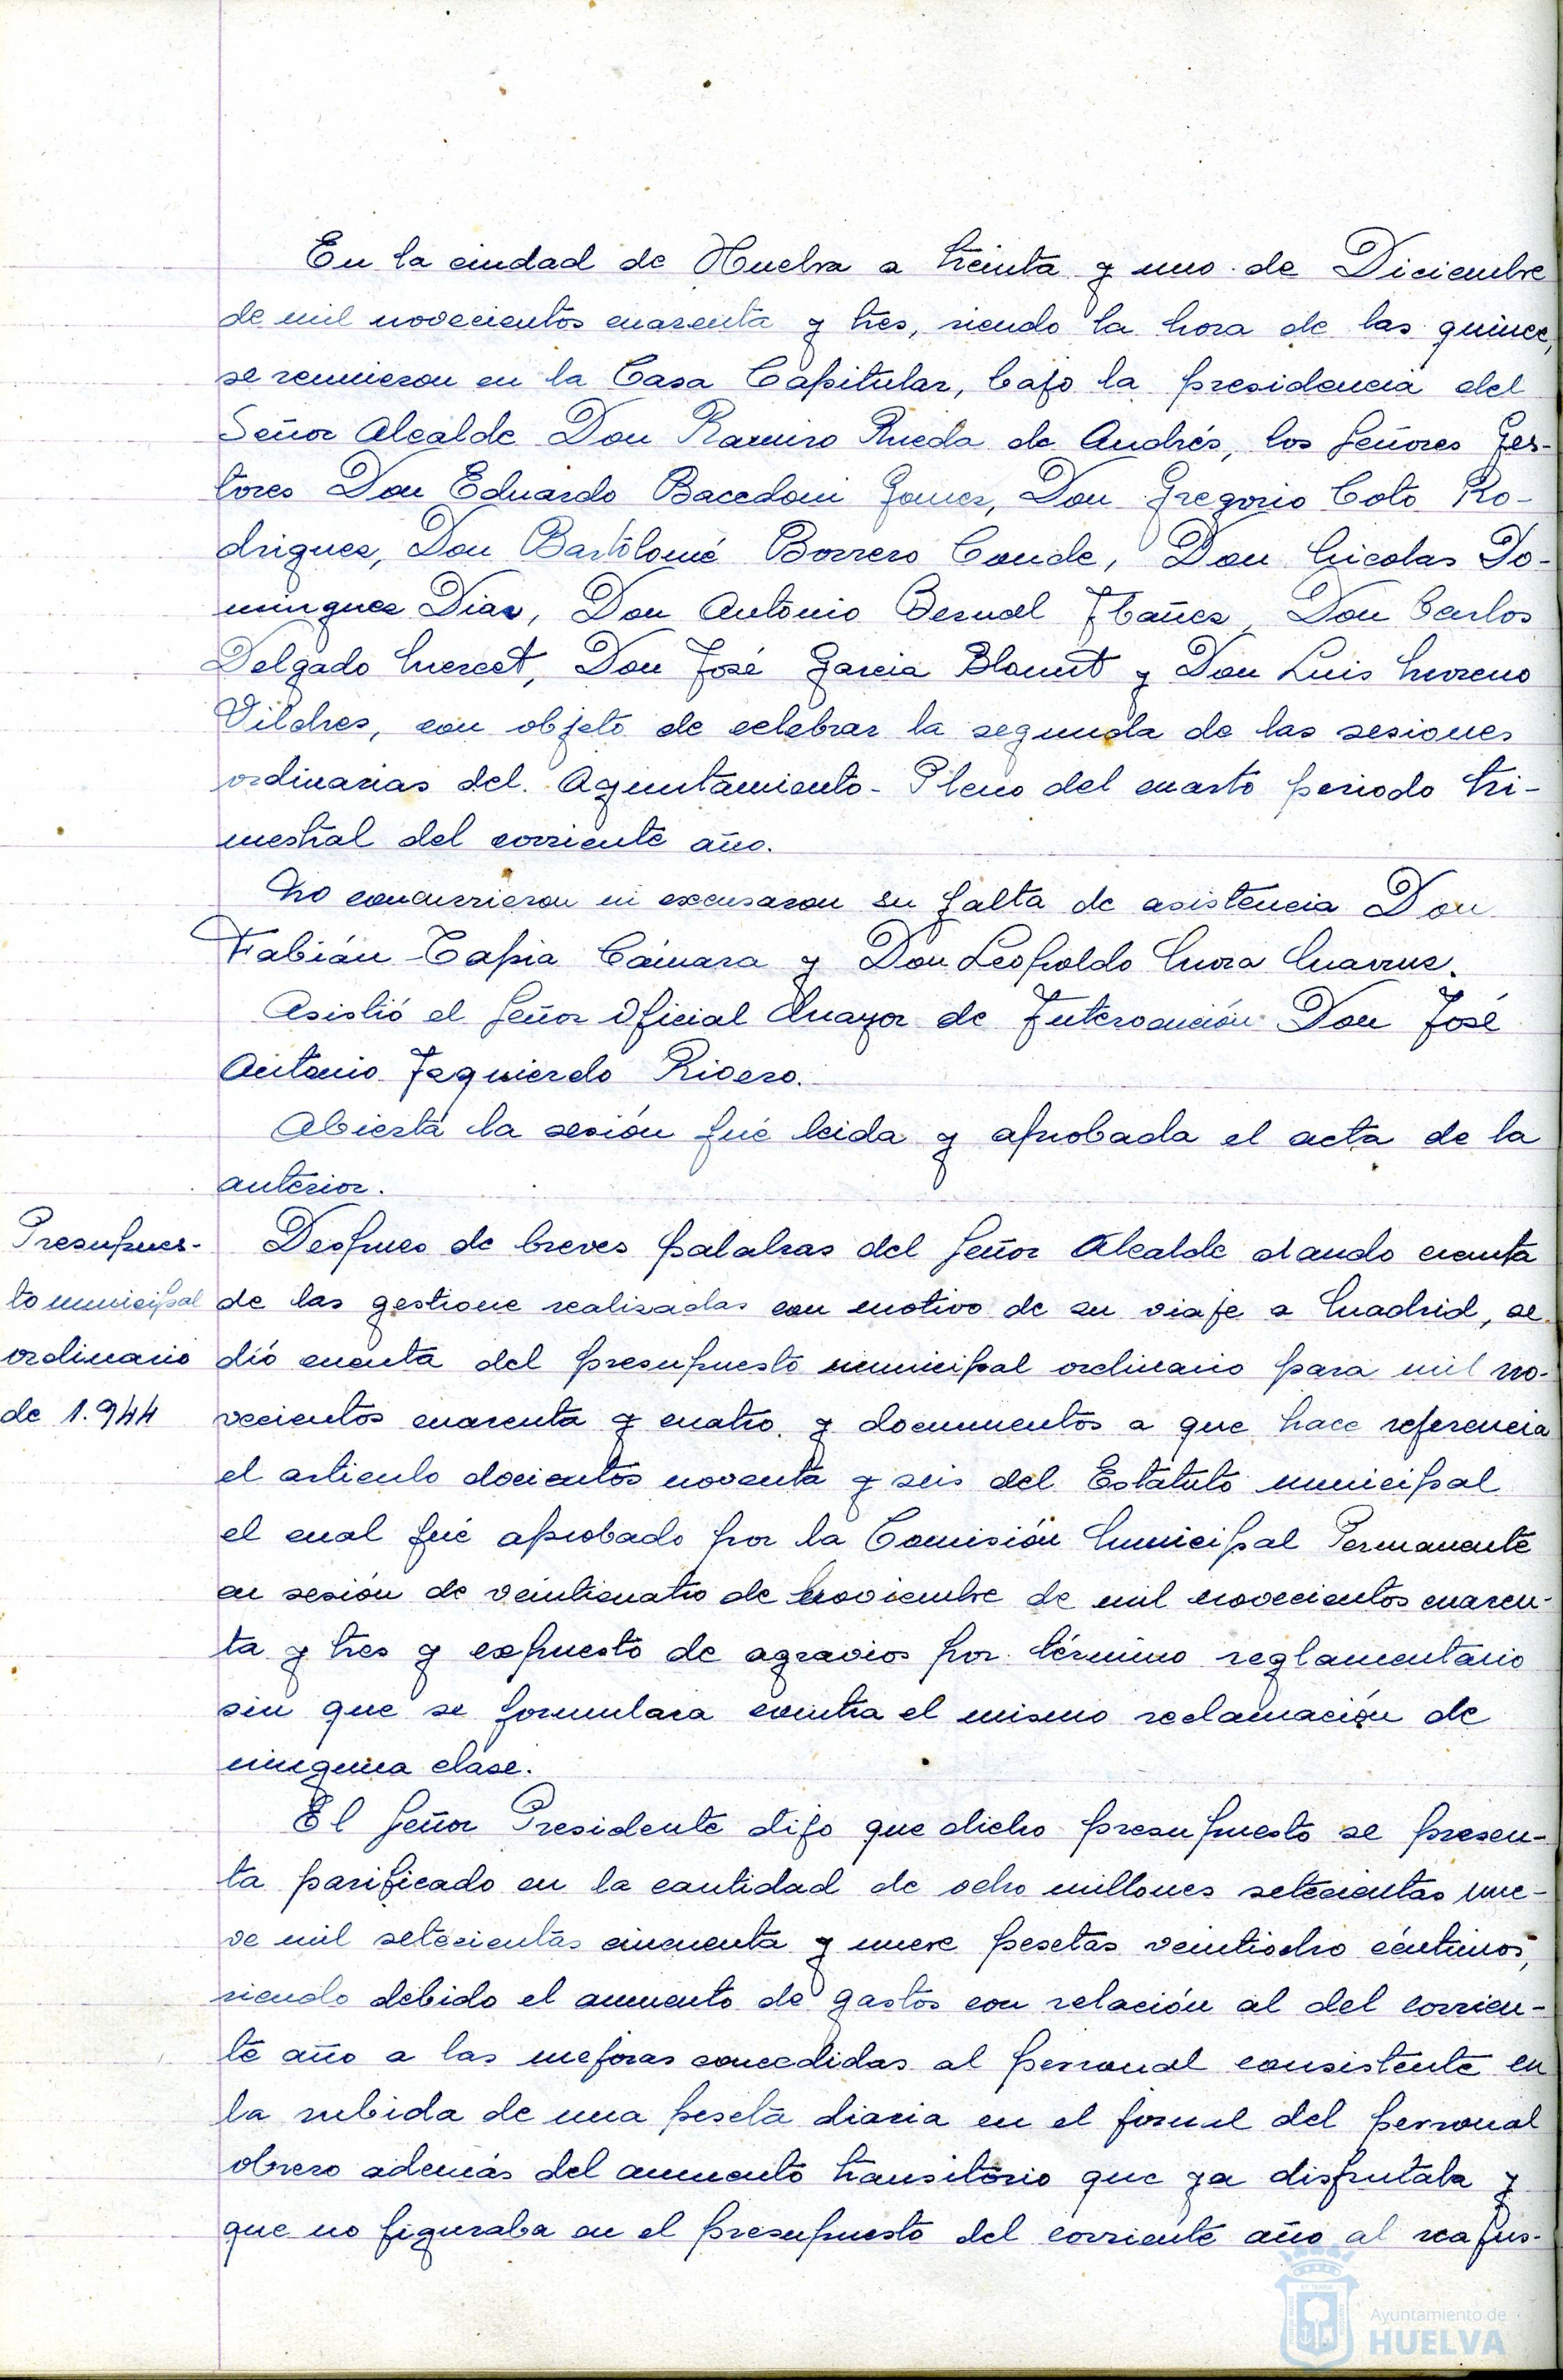 En la ciudad de Huelva a treinta y uno de Diciembre
de mil novecientos cuarenta y tres, siendo la hora de las quince,
se reunieron en la Casa Capitular, bajo la presidencia del
Señor Alcalde Don Ramiro Rueda de Andrés, los Señores Ges-
tores Don Eduardo Bacedoni Gomez, Don Gregorio Coto Ro-
driguez, Don Bartólomé Borrero Conde, Don Nicolas Do-
minguez Diaz, Don Antonio Bernal Ibañez, Don Carlos
Delgado Mercet, Don José Garcia Blount y Don Luis Moreno
Vilches, con objeto de celebrar la segunda de las sesiones
ordinarias del Ayuntamiento-Pleno del cuarto periodo tri-
mestral del corriente año.
No concurrieron ni excusaron su falta de asistencia Don
Fabián Tapia Cámara y Don Leopoldo Mora
Asistió el Señor Oficial Mayor de Intervención Don José
Antonio Izquierdo Rivero.
Abierta la sesión fué leida y aprobada el acta de la
anterior.
Presupues-
to municipal
ordinario
de 1.944
Despues de breves palabras del Señor Alcalde dando cuenta
de las gestione realizadas con motivo de su viaje a Madrid, se
dió cuenta del presupuesto municipal ordinario para mil no-
vecientos cuarenta y cuatro y documentos a que hace referencia
el articulo docientos noventa y seis del Estatuto municipal
el cual fué aprobado por la Comisión Municipal Permanente
en sesión de veinticuatro de Noviembre de mil novecientos cuaren-
ta y tres y expuesto de agravios por término reglamentario
sin que se formulara contra el mismo reclamación de
ninguna clase.
El Señor Presidente dijo que dicho presupuesto se presen-
ta parificado en la cantidad de ocho millones setecientas nue-
ve mil setecientas cincuenta y nueve pesetas veintiocho céntimos,
siendo debido el aumento de gastos con relación al del corrien-
te año a las mejoras concedidas al personal consistente en
la subida de una peseta diaria en el jornal del personal
obrero además del aumento transitorio que ya disfrutaba y
que no figuraba en el presupuesto del corriente año al reajus-
Ayuntamiento de
HUELVA